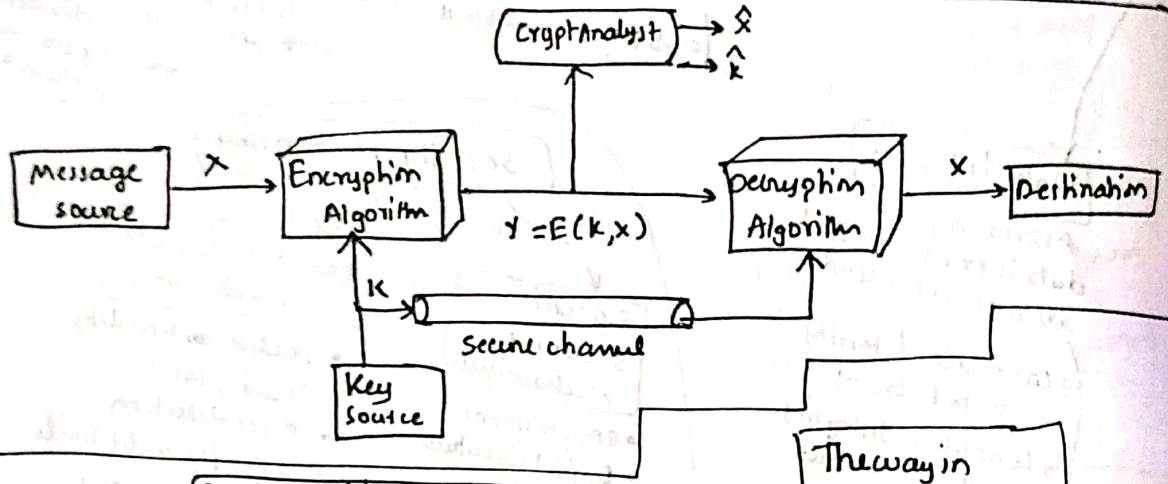 CryptAnalyst
X̂
k̂
Message
source
X
Encryption
Algorithm
Y = E(k,x)
Decryption
Algorithm
X
Destination
K
secure channel
Key
Source
The way in